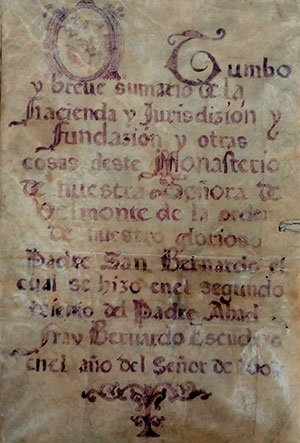 Tumbo
y breve sumario de la
hacienda y Jurisdizion y
Fundazion y otras
cosas deste Monasterio
de nuestra Señora de
Belmonte de la orden
de nuestro glorioso
Padre San Bernardo el
cual se hizo enel segundo
del Padre Abad
Fray Bernardo Escudero
Enel año del Señor de